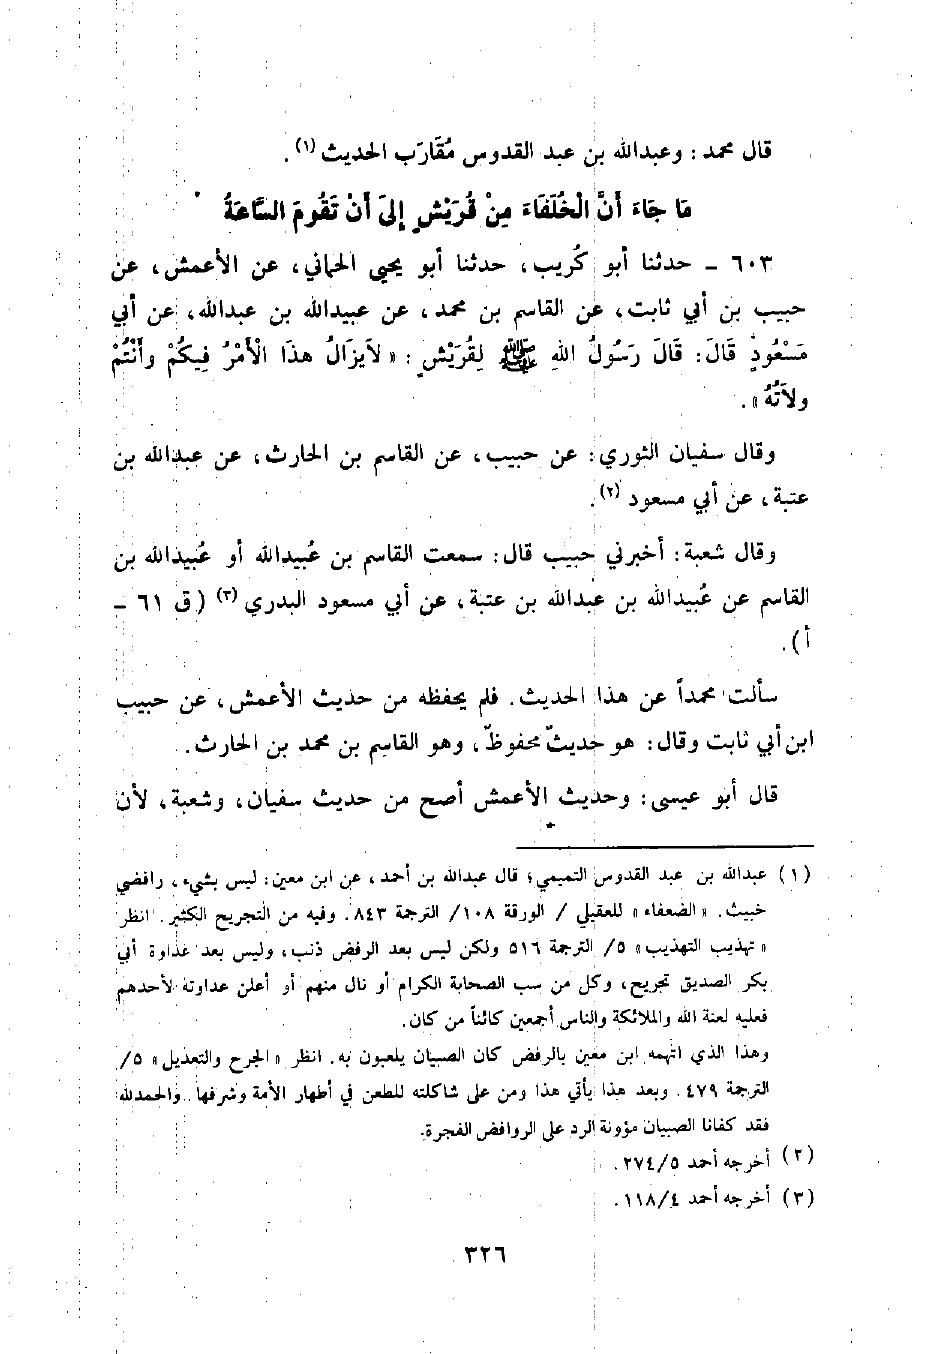 قال محمد : وعبدالله بن عبد القدوس مُقَارَب الحديث (١) .
مَا جَاءَ أَنَّ الْخُلَفَاءَ مِنْ قُرَيْشٍ إِلىَ أَنْ تَقُومَ السَّاعَةُ
٦٠٣ - حدثنا أبو كُريب، حدثنا أبو يحيى الحماني، عن الأعمش، عن
حبيب بن أبي ثابت، عن القاسم بن محمد، عن عبيدالله بن عبدالله، عن أبي
مَسْعُودٍ قَالَ: قَالَ رَسُولُ اللهِ ﷺ لِقُرَيْشٍ : « لاَيَزَالُ هذَا الْأَمْرُ فِيكُمْ وأَنْتُمْ
ولاَتُهُ » .
وقال سفيان الثوري: عن حبيب، عن القاسم بن الحارث، عن عبدالله بن
عتبة، عن أبي مسعود (٢).
وقال شعبة: أخبرني حبيب قال: سمعت القاسم بن عُبيدالله أو عُبيدالله بن
القاسم عن عُبيدالله بن عبدالله بن عتبة، عن أبي مسعود البدري (٣) ( ق ٦١ -
أ ) .
سألت محمداً عن هذا الحديث. فلم يحفظه من حديث الأعمش، عن حبيب
ابن أبي ثابت وقال: هو حديثٌ محفوظٌ، وهو القاسم بن محمد بن الحارث.
قال أبو عيسى: وحديث الأعمش أصح من حديث سفيان، وشعبة، لأن
(١) عبدالله بن عبد القدوس التميمي؛ قال عبدالله بن أحمد، عن ابن معين: ليس بشيء، رافضي
خبيث. « الضعفاء » للعقيلي / الورقة ١٠٨/ الترجمة ٨٤٣. وفيه من التجريح الكثير. انظر
« تهذيب التهذيب » ٥/ الترجمة ٥١٦ ولكن ليس بعد الرفض ذنب، وليس بعد عداوة أبي
بكر الصديق تجريح، وكل من سب الصحابة الكرام أو نال منهم أو أعلن عداوته لأحدهم
فعليه لعنة الله والملائكة والناس أجمعين كائناً من كان.
وهذا الذي اتهمه ابن معين بالرفض كان الصبيان يلعبون به. انظر « الجرح والتعديل » ٥/
الترجمة ٤٧٩. وبعد هذا يأتي هذا ومن على شاكلته للطعن في أطهار الأمة وشرفها. والحمدلله
فقد كفانا الصبيان مؤونة الرد على الروافض الفجرة.
(٢) أخرجه أحمد ٢٧٤/٥.
(٣) أخرجه أحمد ١١٨/٤.
٣٢٦